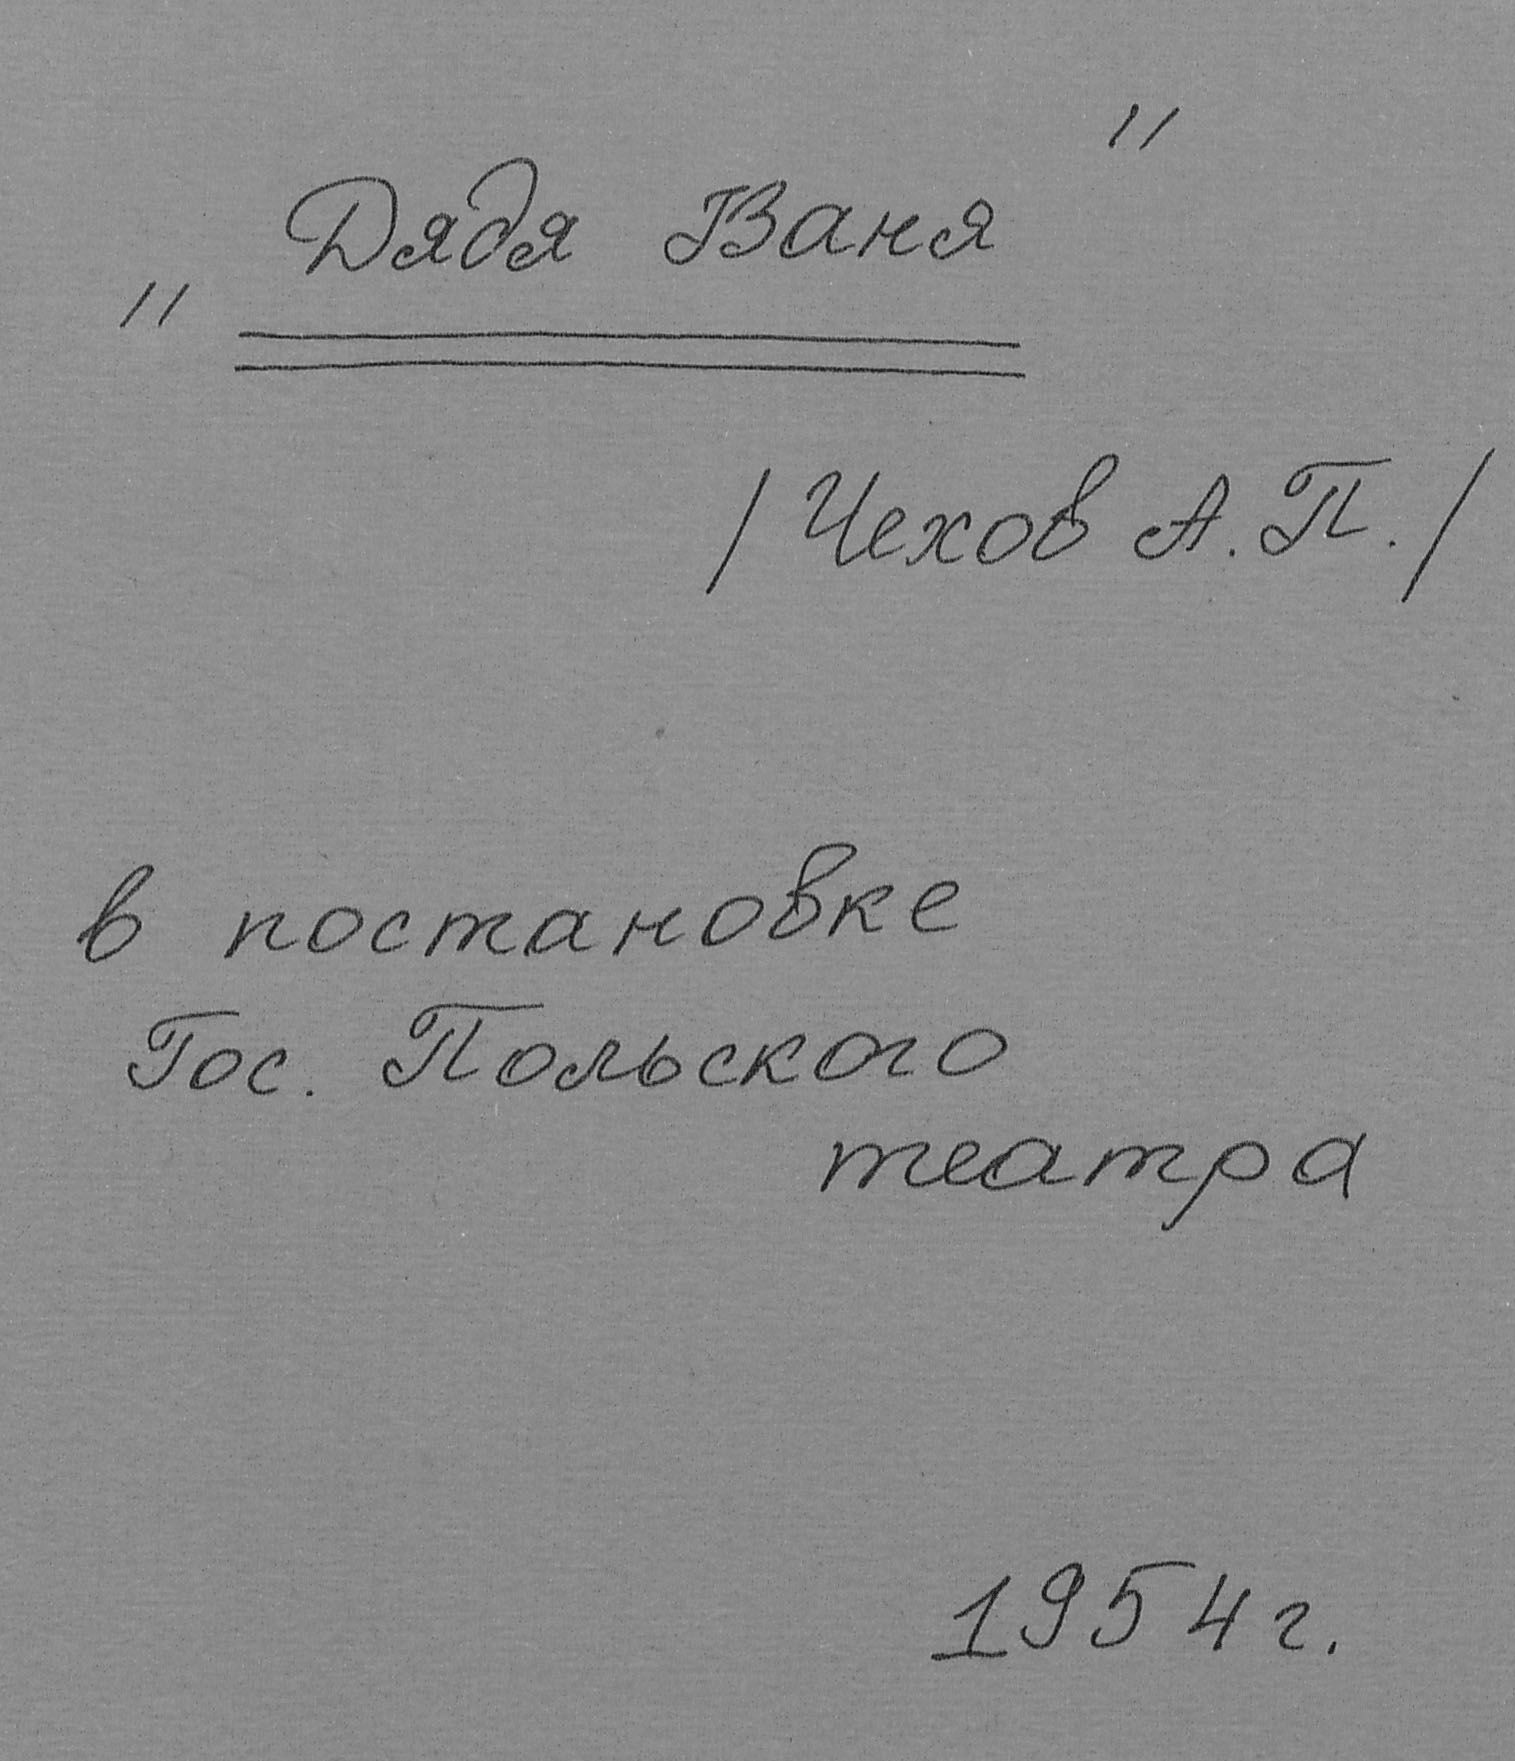 „Дядя Ваня"
/Чехов А.П./
в постановке
Гос. Польского
театра
1954г.